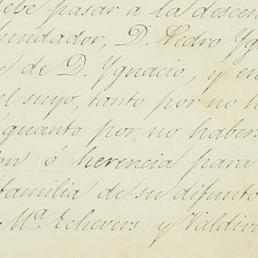 debe pasar a la descen
fundador, D. Pedro Yg
e de D. Ygnacio, y en
el suyo, tanto por no h
quanto por no habers
on ó herencia para
familia de su difunto
Mª. Echevers y Valdiv